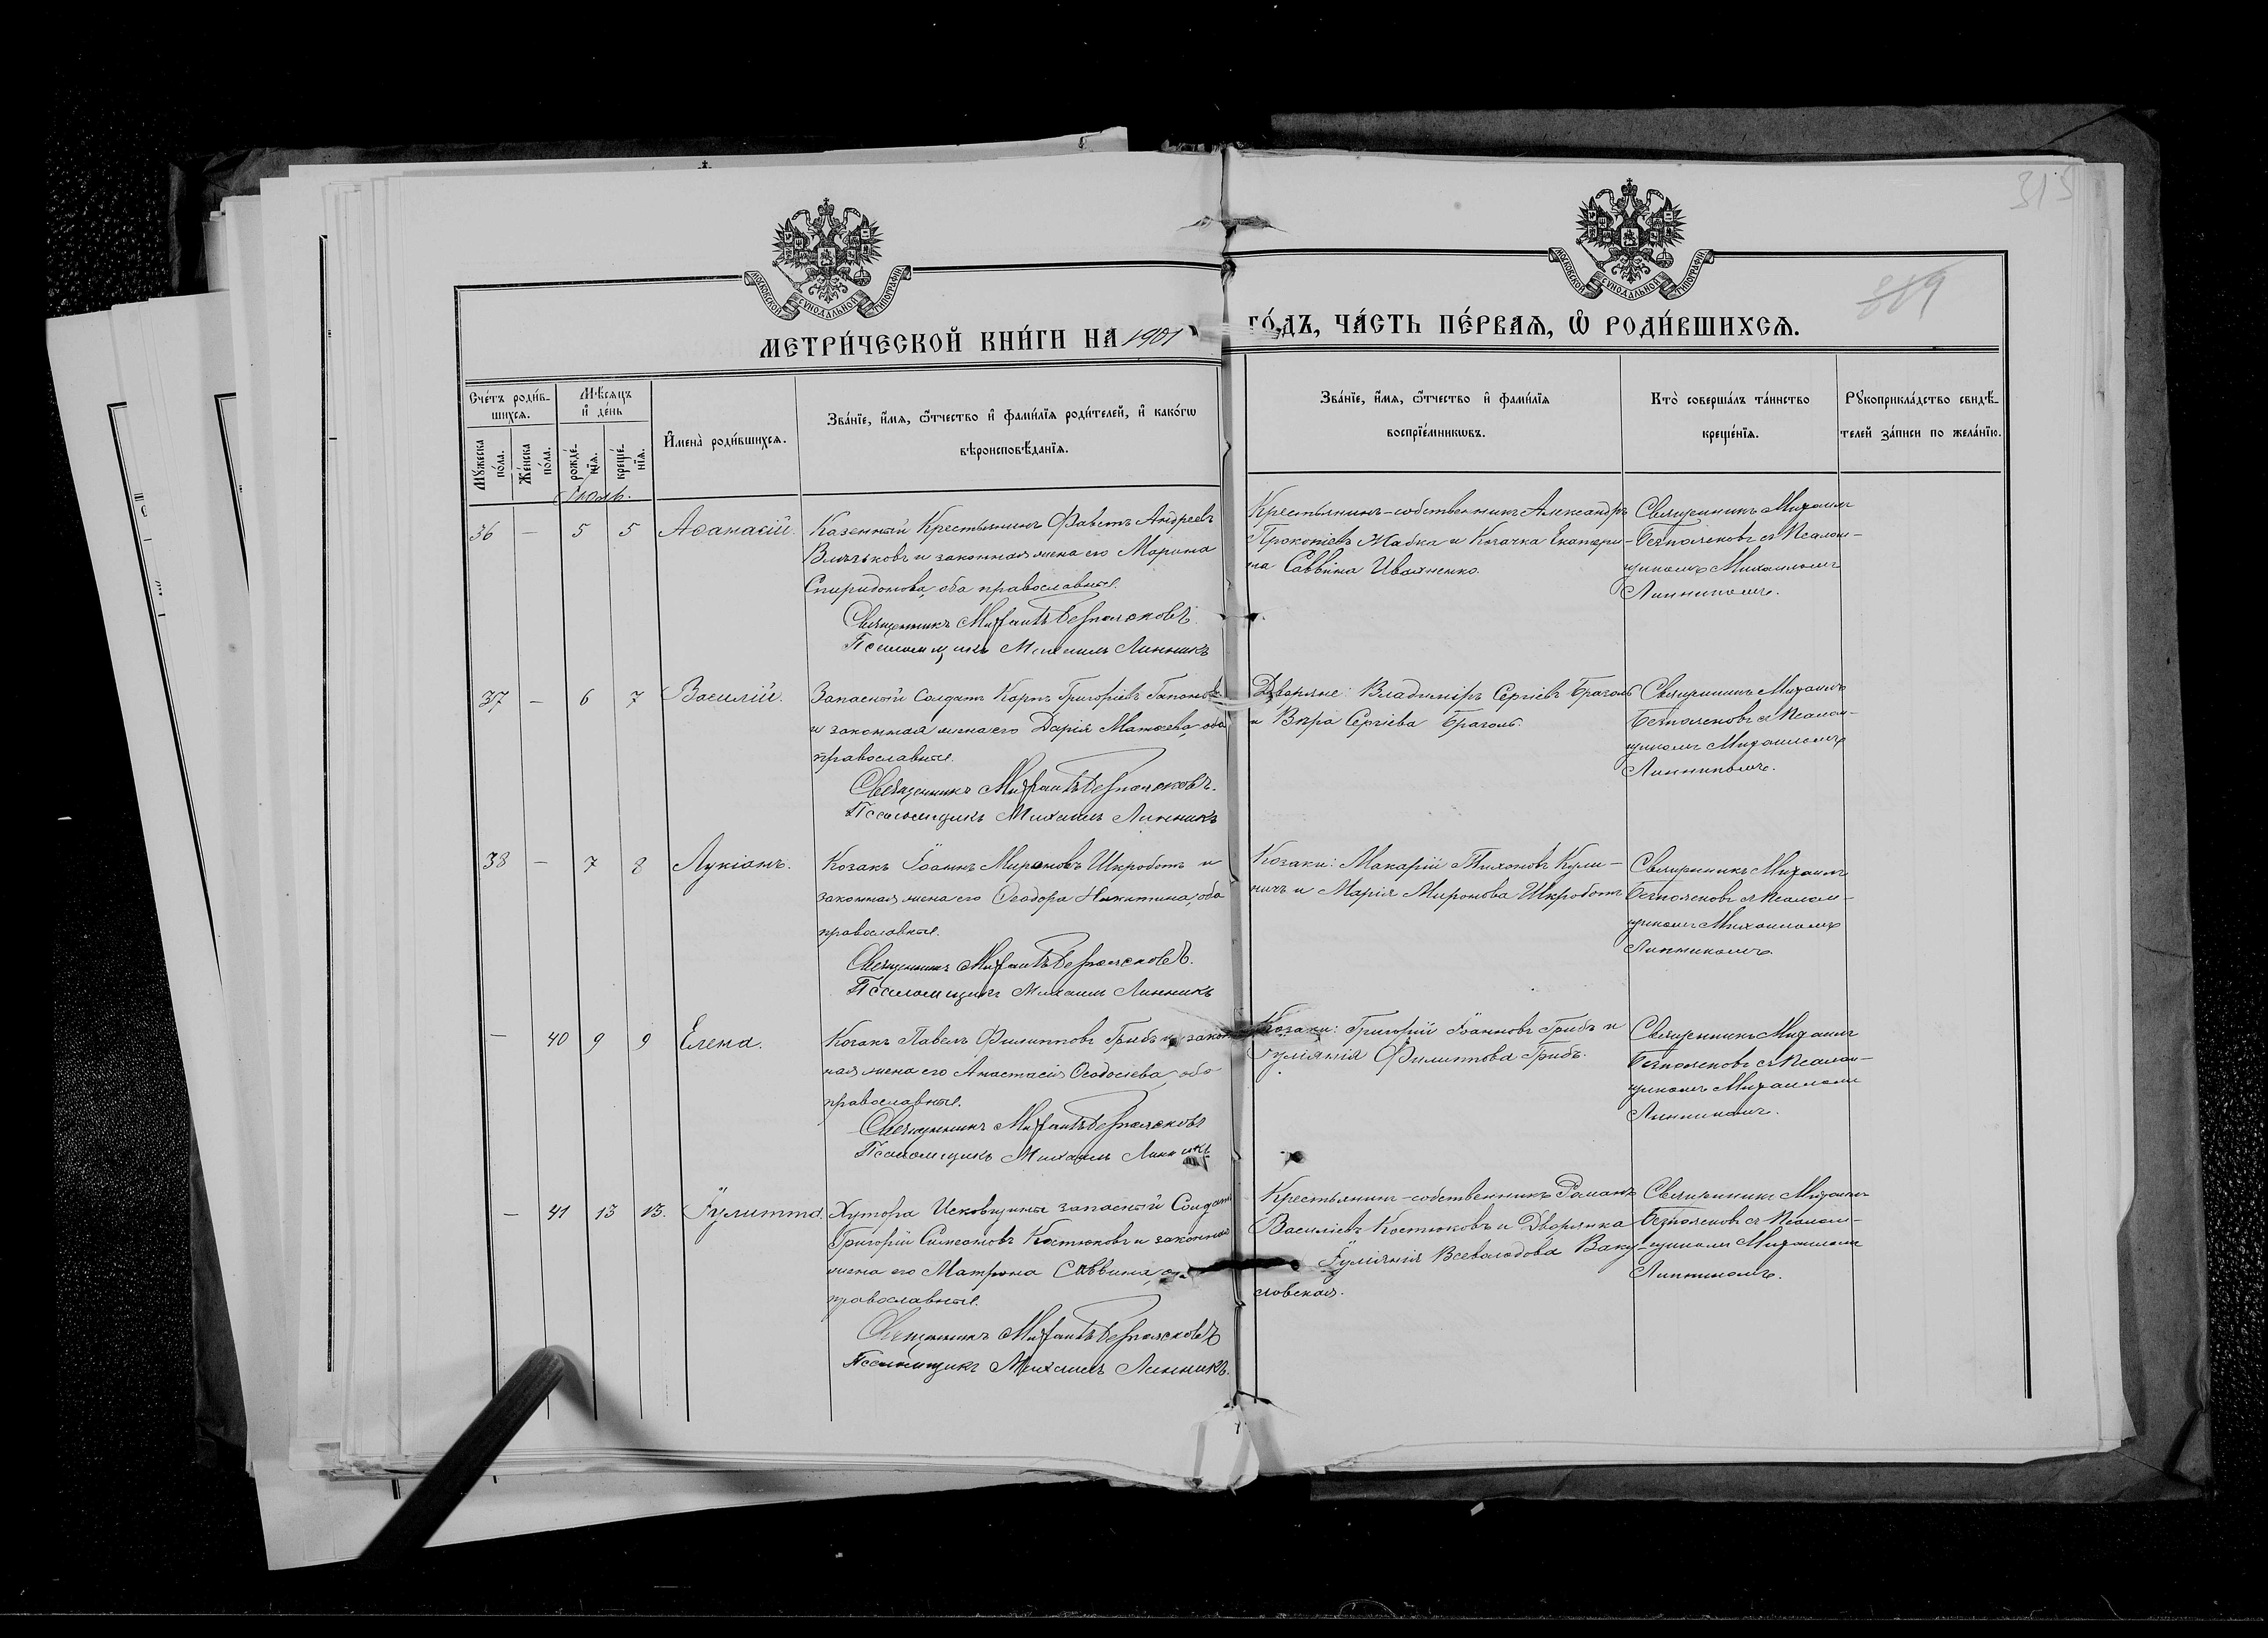 315
319
МОСКОВСКОЙ СѴНОДАЛЬНОЙ ТИПОГРАФІИ
МОСКОВСКОЙ СѴНОДАЛЬНОЙ ТИПОГРАФІИ
МЕТРИ́ЧЕСКОЙ КНИ́ГИ НА 1901 ГО́ДЪ, ЧА́СТЬ ПЕ́РВАѦ, Ѡ҆ РОДИ́ВШИХСѦ.
Сче́тъ роди́в-
шихсѧ.
Мꙋжеска по́ла.
Же́нска по́ла.
Мѣ́сѧцъ и҆ де́нь
рожде́-
нїѧ.
креще́-
нїѧ.
И҆мена̀ роди́вшихсѧ.
Зва́нїе, и҆́мѧ, ѻ҆́тчество и҆ фами́лїѧ роди́телей, и҆ како́гѡ
вѣроисповѣ́данїѧ.
Зва́нїе, и҆́мѧ, ѻ҆́тчество и҆ фами́лїѧ
воспрїе́мникѡвъ.
Кто̀ соверша́лъ та́инство
креще́нїѧ.
Рꙋкоприкла́дство свидѣ́-
телей за́писи по жела́нїю.
Іюль.
36 — 5 5 Аѳанасій.
Казенный Крестьянинъ Фавстъ Андреевъ
и законная жена его Марина
Спиридонова, оба православные.
Священникъ Михаилъ Безпоясковъ.
Псаломщикъ Михаилъ Линникъ
Крестьянинъ-собственникъ Александръ
Прокопіевъ Жабка и Козачка Екатери-
на Саввина Ивахненко.
Священникъ Михаилъ
Безпоясковъ съ Псалом-
щикомъ Михаиломъ
Линникомъ.
37 — 6 7 Василій.
Запасной Солдатъ Карпъ Григоріевъ Гапоновъ
и законная жена его Дарія Матѳеева, оба
православные.
Священникъ Михаилъ Безпоясковъ.
Псаломщикъ Михаилъ Линникъ
Дворяне: Владиміръ Сергіевъ Браголь
и Вѣра Сергіева Браголь.
Священникъ Михаилъ
Безпоясковъ съ Псалом-
щикомъ Михаиломъ
Линникомъ.
38 — 7 8 Лукіанъ.
Козакъ Іоаннъ Мироновъ Шкроботъ и
законная жена его Ѳеодора Никитина, оба
православные.
Священникъ Михаилъ Безпоясковъ.
Псаломщикъ Михаилъ Линникъ
Козаки: Макарій Тихоновъ Кули-
ничъ и Марія Миронова Шкроботъ
Священникъ Михаилъ
Безпоясковъ съ Псалом-
щикомъ Михаиломъ
Линникомъ.
— 40 9 9 Елена.
Козакъ Павелъ Филипповъ Грибъ и закон
ная жена его Анастасія Ѳеодосіева оба
православные.
Священникъ Михаилъ Безпоясковъ
Псаломщикъ Михаилъ Линникъ
Козаки: Григорій Іоанновъ Грибъ и
Іуліанія Филиппова Грибъ.
Священникъ Михаилъ
Безпоясковъ съ Псалом-
щикомъ Михаиломъ
Линникомъ.
— 41 13 13. Іулитта.
Хутора Исковщины запасный Солдатъ
Григорій Симеоновъ Костюковъ и законная
жена его Матрона Саввина,
православные.
Священникъ Михаилъ Безпоясковъ
Псаломщикъ Михаилъ Линникъ.
Крестьянинъ-собственникъ Романъ
Василіевъ Костюковъ и Дворянка
Іуліанія Всеволодова Ваку-
ловская.
Священникъ Михаилъ
Безпоясковъ съ Псалом-
щикомъ Михаиломъ
Линникомъ.